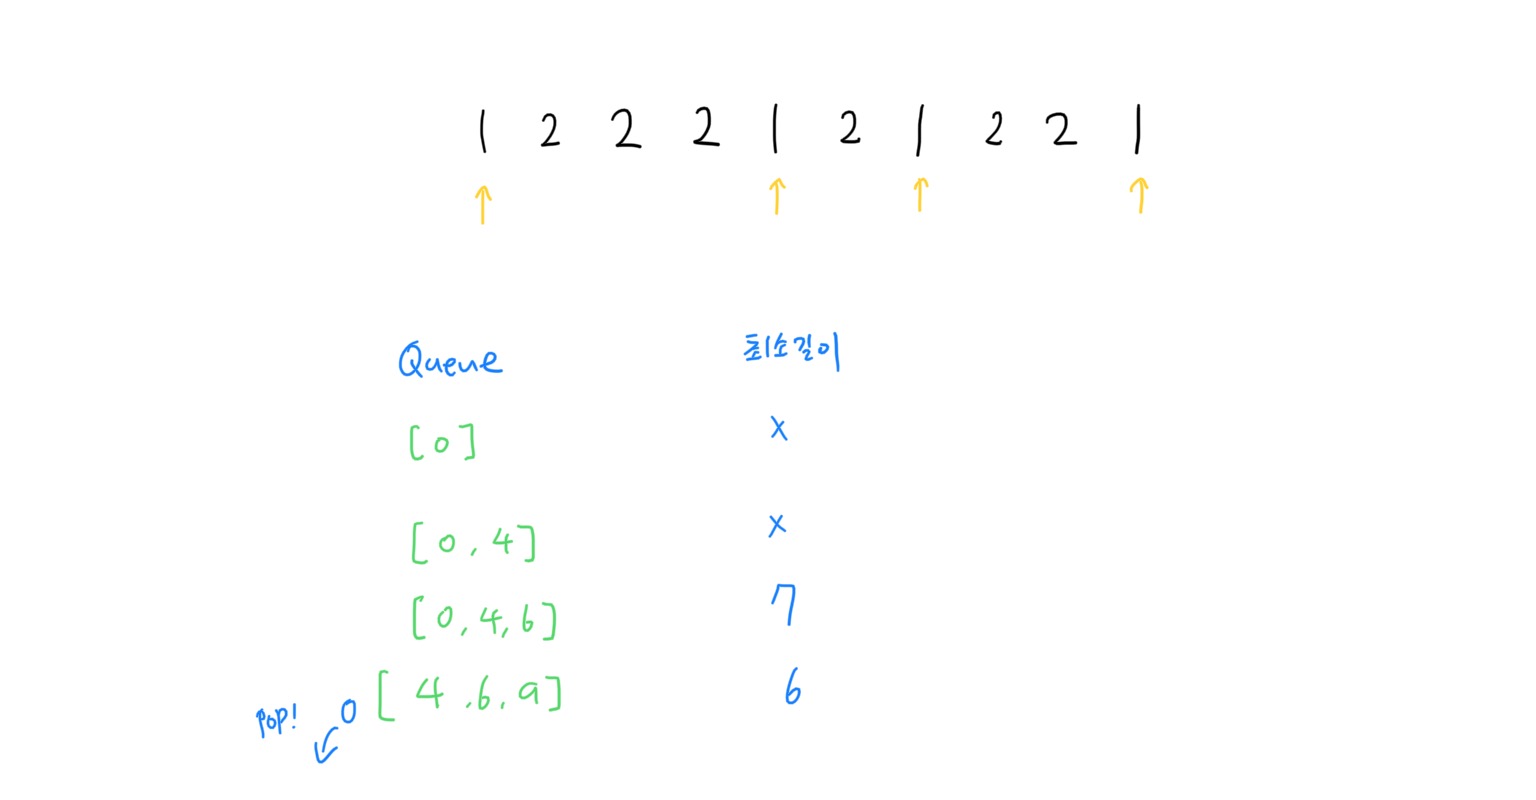 1 2 2 2 1 2 1 2 2 1
↑ ↑ ↑ ↑
Queue 최소길이
[0] x
[0, 4] x
[0, 4, 6] 7
pop! 0 [4, 6, 9] 6